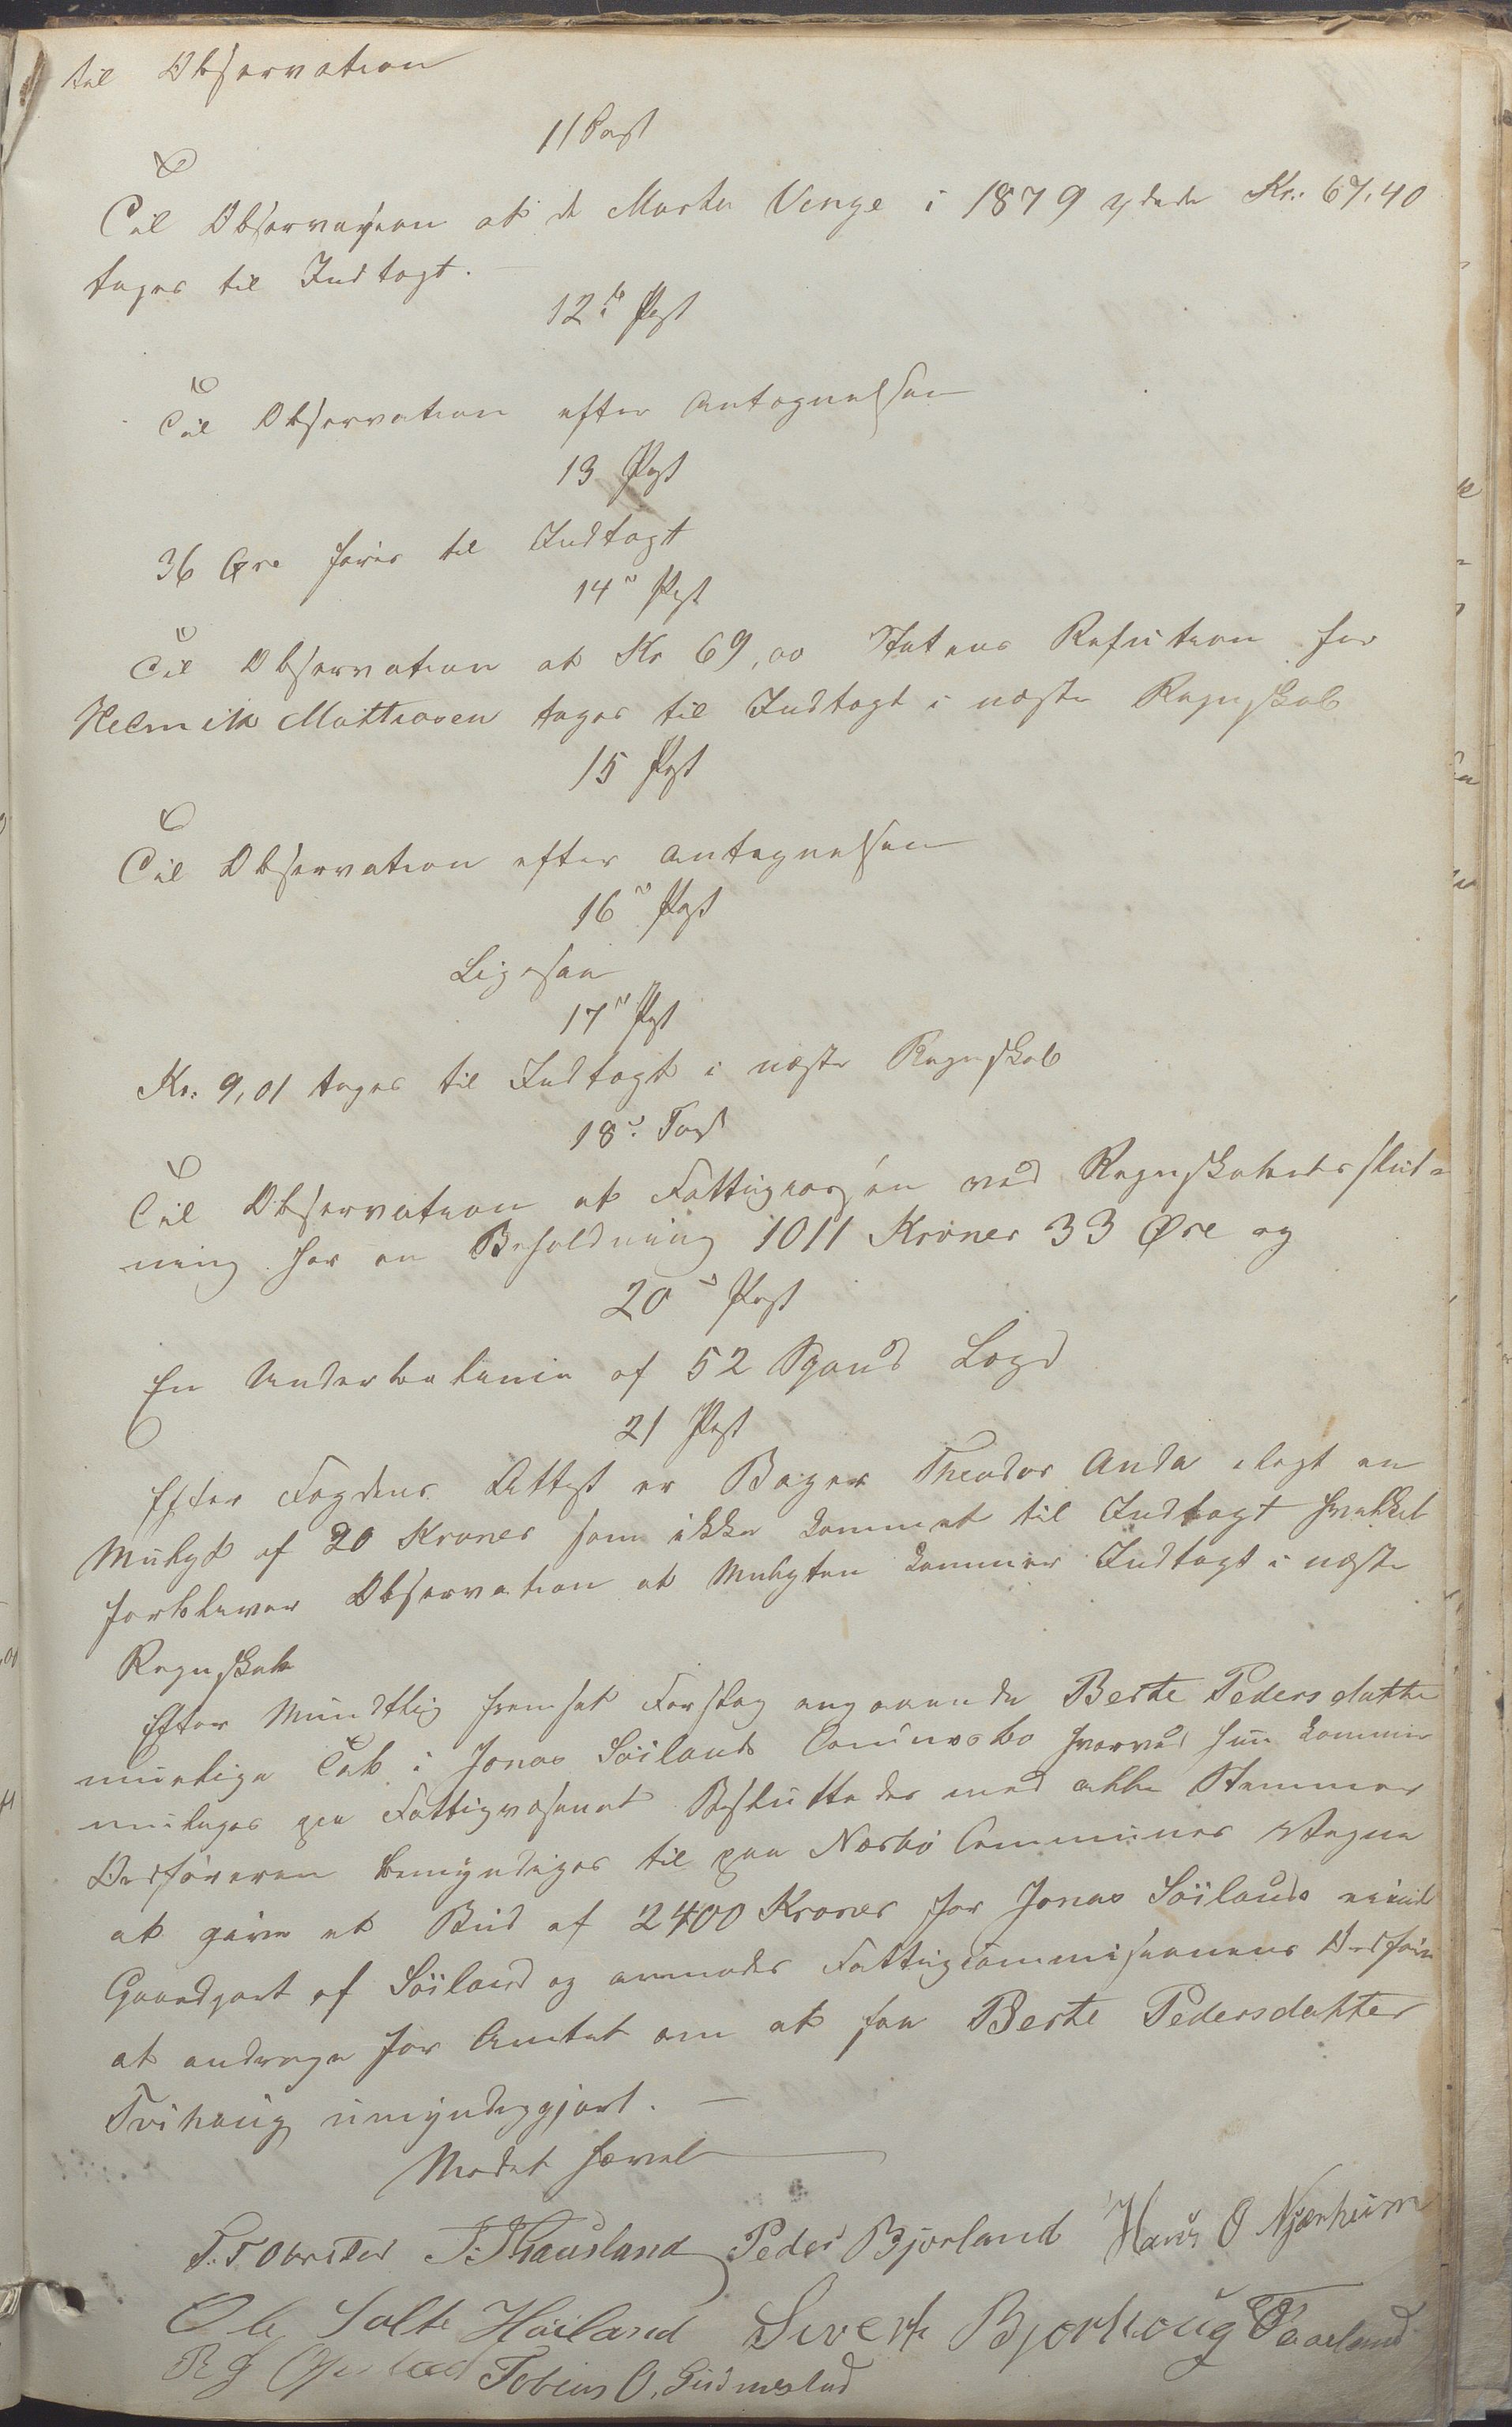 til Observation
11 Post
Til Observasion at de Marta Venge i 1879 ydede Kr: 67,40
tages til Indtægt.
12te Post
Til Observation efter Antagnelsen
13 Post
36 Øre føres til Indtægt
14" Post
Til Observation at Kr 69,00 Statens Refution for
Helmik Mathiasen tages til Indtægt i næste Regnskab
15 Post
Til Observation efter Antegnelsen
16" Post
Ligesaa
17" Post
Kr: 9,01 tages til Indtægt i næste Regnskab
18" Post
Til Observation at Fattigcassen ved Regnskabets slut-
ning har en Beholdning 1011 Kroner 33 Øre og
20" Post
En Underbalance af 52 Spand Lægd
21 Post
Efter Fogdens Attest er Bager Theodor Anda ilagt en
Mulkt af 20 Kroner som ikke kommet til Indtægt hvilket
forbliver Observation at Mulkten kommer Indtægt i næste
Regnskab
Efter Mundtlig fremsat Forslag angaaende Berte Pedersdatter
muelige Tab i Jonas Söilands Concursbo hvorved hun kommer
muliges paa Fattigvæsenet Besluttedes med alle Stemmer
Ordføreren bemyndiges til paa Nærbø Communes Vegne
at give et Bud af 2400 Kroner for Jonas Söilands
Gaardpart af Söiland og anmodes Fattigcommisionens Ordfører
at andrage for Amtet om at faa Berte Pedersdatter
Tvihaug umyndiggjort. —
Mødet hævet
T. T Obrestad T. Thausland Peder Bjorland Hans O Njærheim
Ole Salte Høiland Sivert Bjorhoug Vaarland
R G Opstad Tobias O. Gudmestad